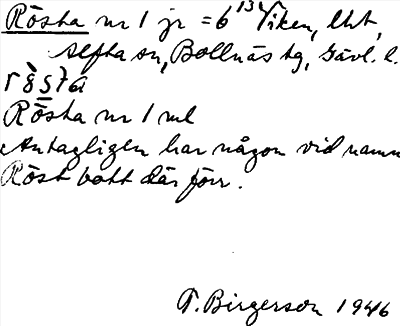 Rösta nr 1 jr = 6¹³ Viken, lht,
Alfta sn, Bollnäs tg, Gävl. l.
rö̀sta
Rösta nr 1 ml
Antagligen har någon vid namn
Röst bott där förr.
T. Birgerson 1946